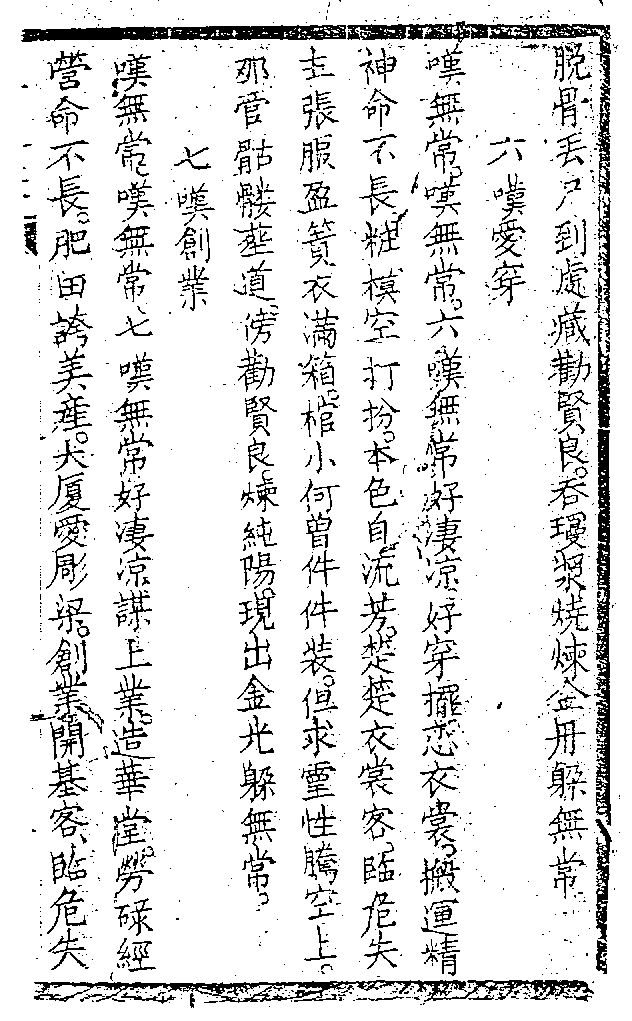 脫骨丟尸到處藏勸賢良。吞瓊漿燒煉金丹躲無常
六嘆愛穿
嘆無常。嘆無常。六嘆無常好凄凉。好穿擺恋衣裳。搬運精
神命不長。粧模空打扮。本色自流芳。楚楚衣裳客。臨危失
主張服盈篢衣滿箱。棺小何曾件件裝。但求靈性騰空上。
那管骷髏塟道傍勸賢良。煉純陽。現出金光躲無常。
七嘆創業
嘆無常、嘆無常、七嘆無常好凄凉謀上業。造華堂。勞碌經
營命不長。肥田誇美產。大厦愛彫梁。創業開基客、臨危失